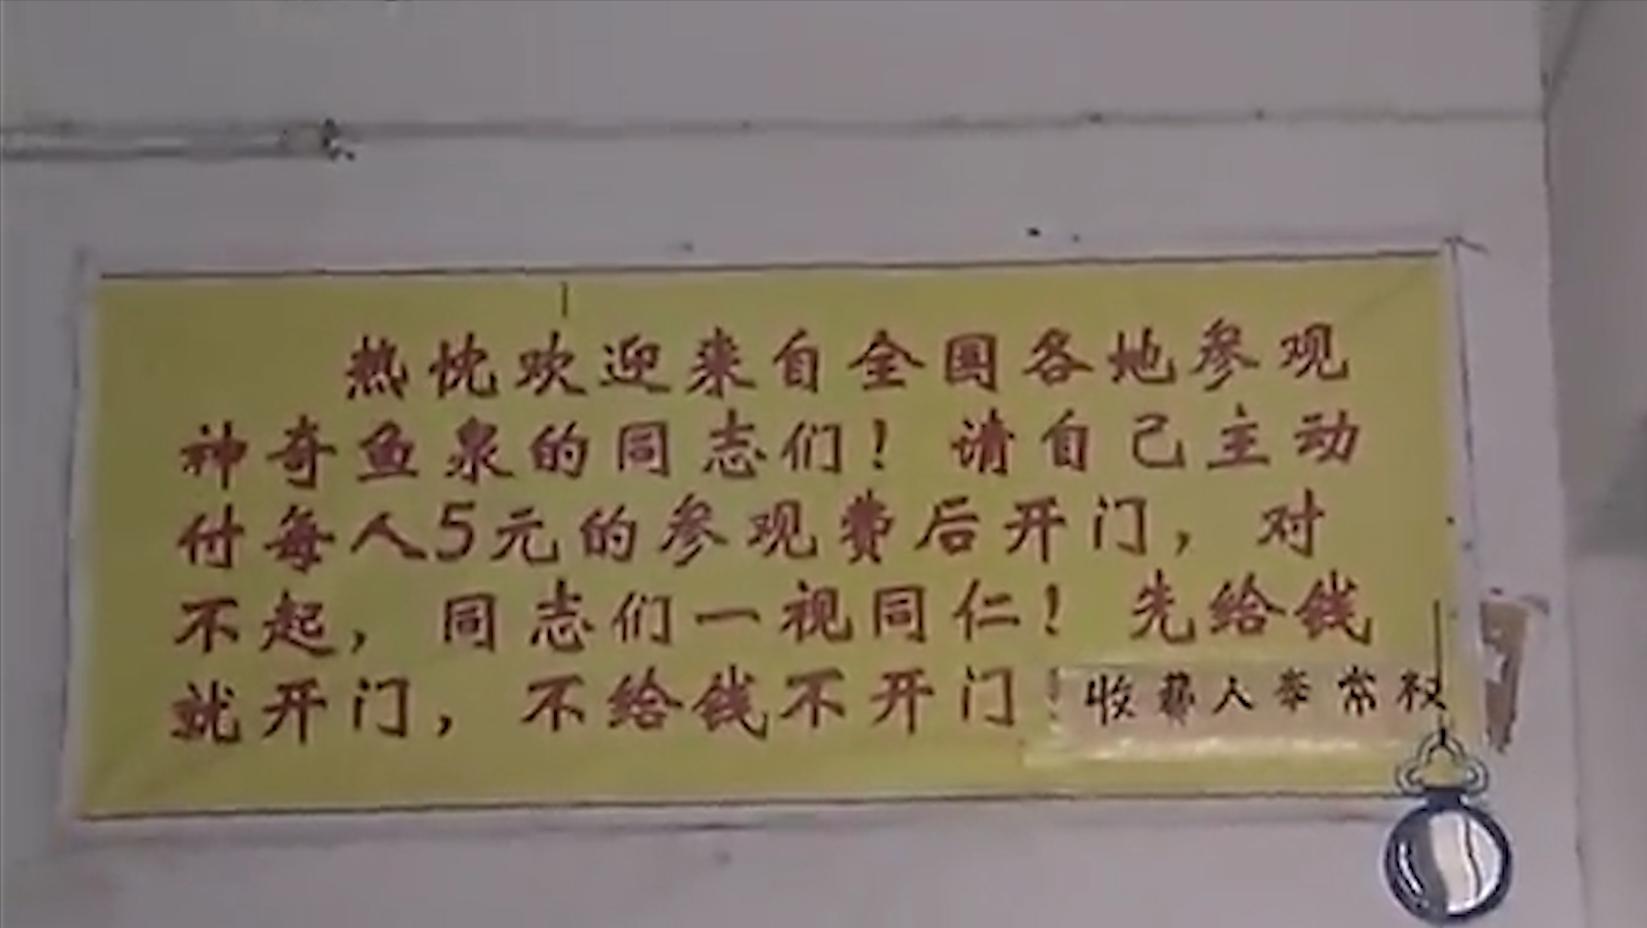 热忱欢迎来自全国各地参观
神奇鱼泉的同志们！请自己主动
付每人5元的参观费后开门，对
不起，同志们一视同仁！先给钱
就开门，不给钱不开门！收费人李常权